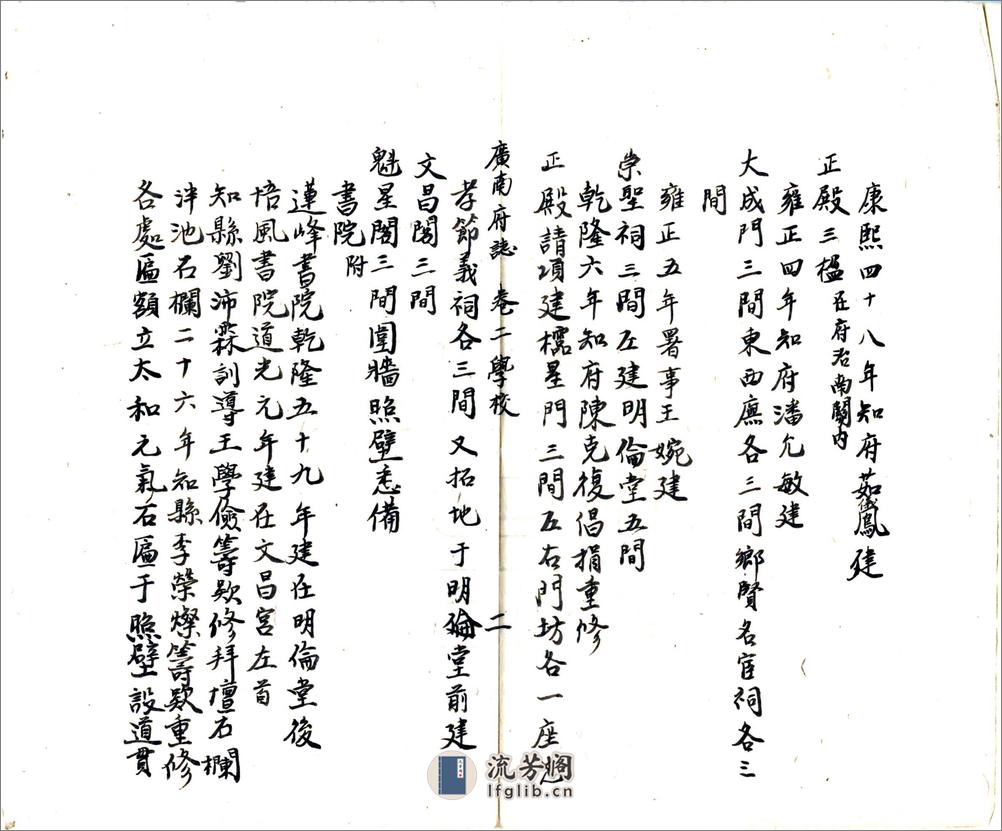 康熙四十八年知府茹儀鳳建
正殿三楹在府治南關內
雍正四年知府潘允敏建
大成門三間東西廡各三間鄉賢名宦祠各三
間
雍正五年署事王婉建
崇聖祠三間左建明倫堂五間
乾隆六年知府陳克復倡捐重修
正殿請項建欞星門三間左右門坊各一座
廣南府誌 卷二學校 二
孝節義祠各三間又拓地于明倫堂前建
文昌閣三間
魁星閣三間圍牆照壁悉備
書院附
蓮峰書院乾隆五十九年建在明倫堂後
培風書院道光元年建在文昌宮左首
知縣劉沛霖訓導王學儉籌欵修拜壇石欄
泮池石欄二十六年知縣李榮燦籌欵重修
各處匾額立太和元氣石匾于照壁設道貫
流芳阁
lfglib.cn